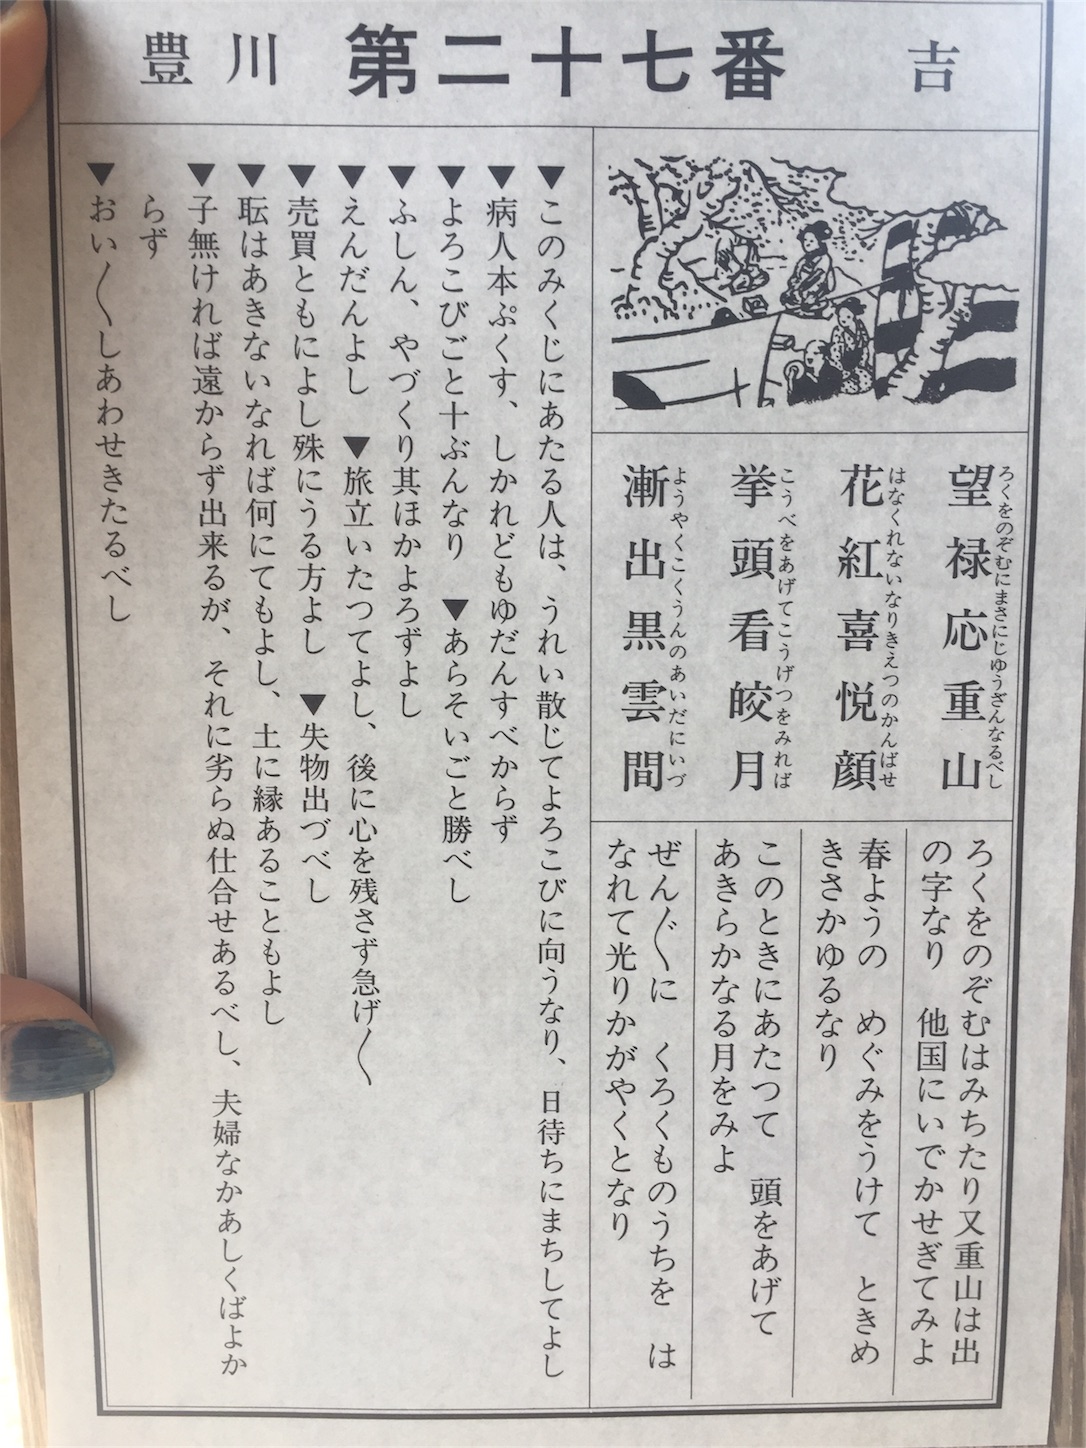 吉
第二十七番
豊川
望禄応重山
ろくをのぞむにまさにじゆうざんなるべし
花紅喜悦顔
はなくれないなりきえつのかんばせ
挙頭看皎月
こうべをあげてこうげつをみれば
漸出黒雲間
ようやくこくうんのあいだにいづ
ろくをのぞむはみちたり又重山は出
の字なり　他国にいでかせぎてみよ
春ようの　めぐみをうけて　ときめ
きさかゆるなり
このときにあたつて　頭をあげて
あきらかなる月をみよ
ぜん〴〵に　くろくものうちを　は
なれて光りかがやくとなり
▼このみくじにあたる人は、うれい散じてよろこびに向うなり、日待ちにまちしてよし
▼病人本ぷくす、しかれどもゆだんすべからず
▼よろこびごと十ぶんなり　▼あらそいごと勝べし
▼ふしん、やづくり其ほかよろずよし
▼えんだんよし　▼旅立いたつてよし、後に心を残さず急げ〱
▼売買ともによし殊にうる方よし　▼失物出づべし
▼耺はあきないなれば何にてもよし、土に縁あることもよし
▼子無ければ遠からず出来るが、それに劣らぬ仕合せあるべし、夫婦なかあしくばよか
らず
▼おい〱しあわせきたるべし